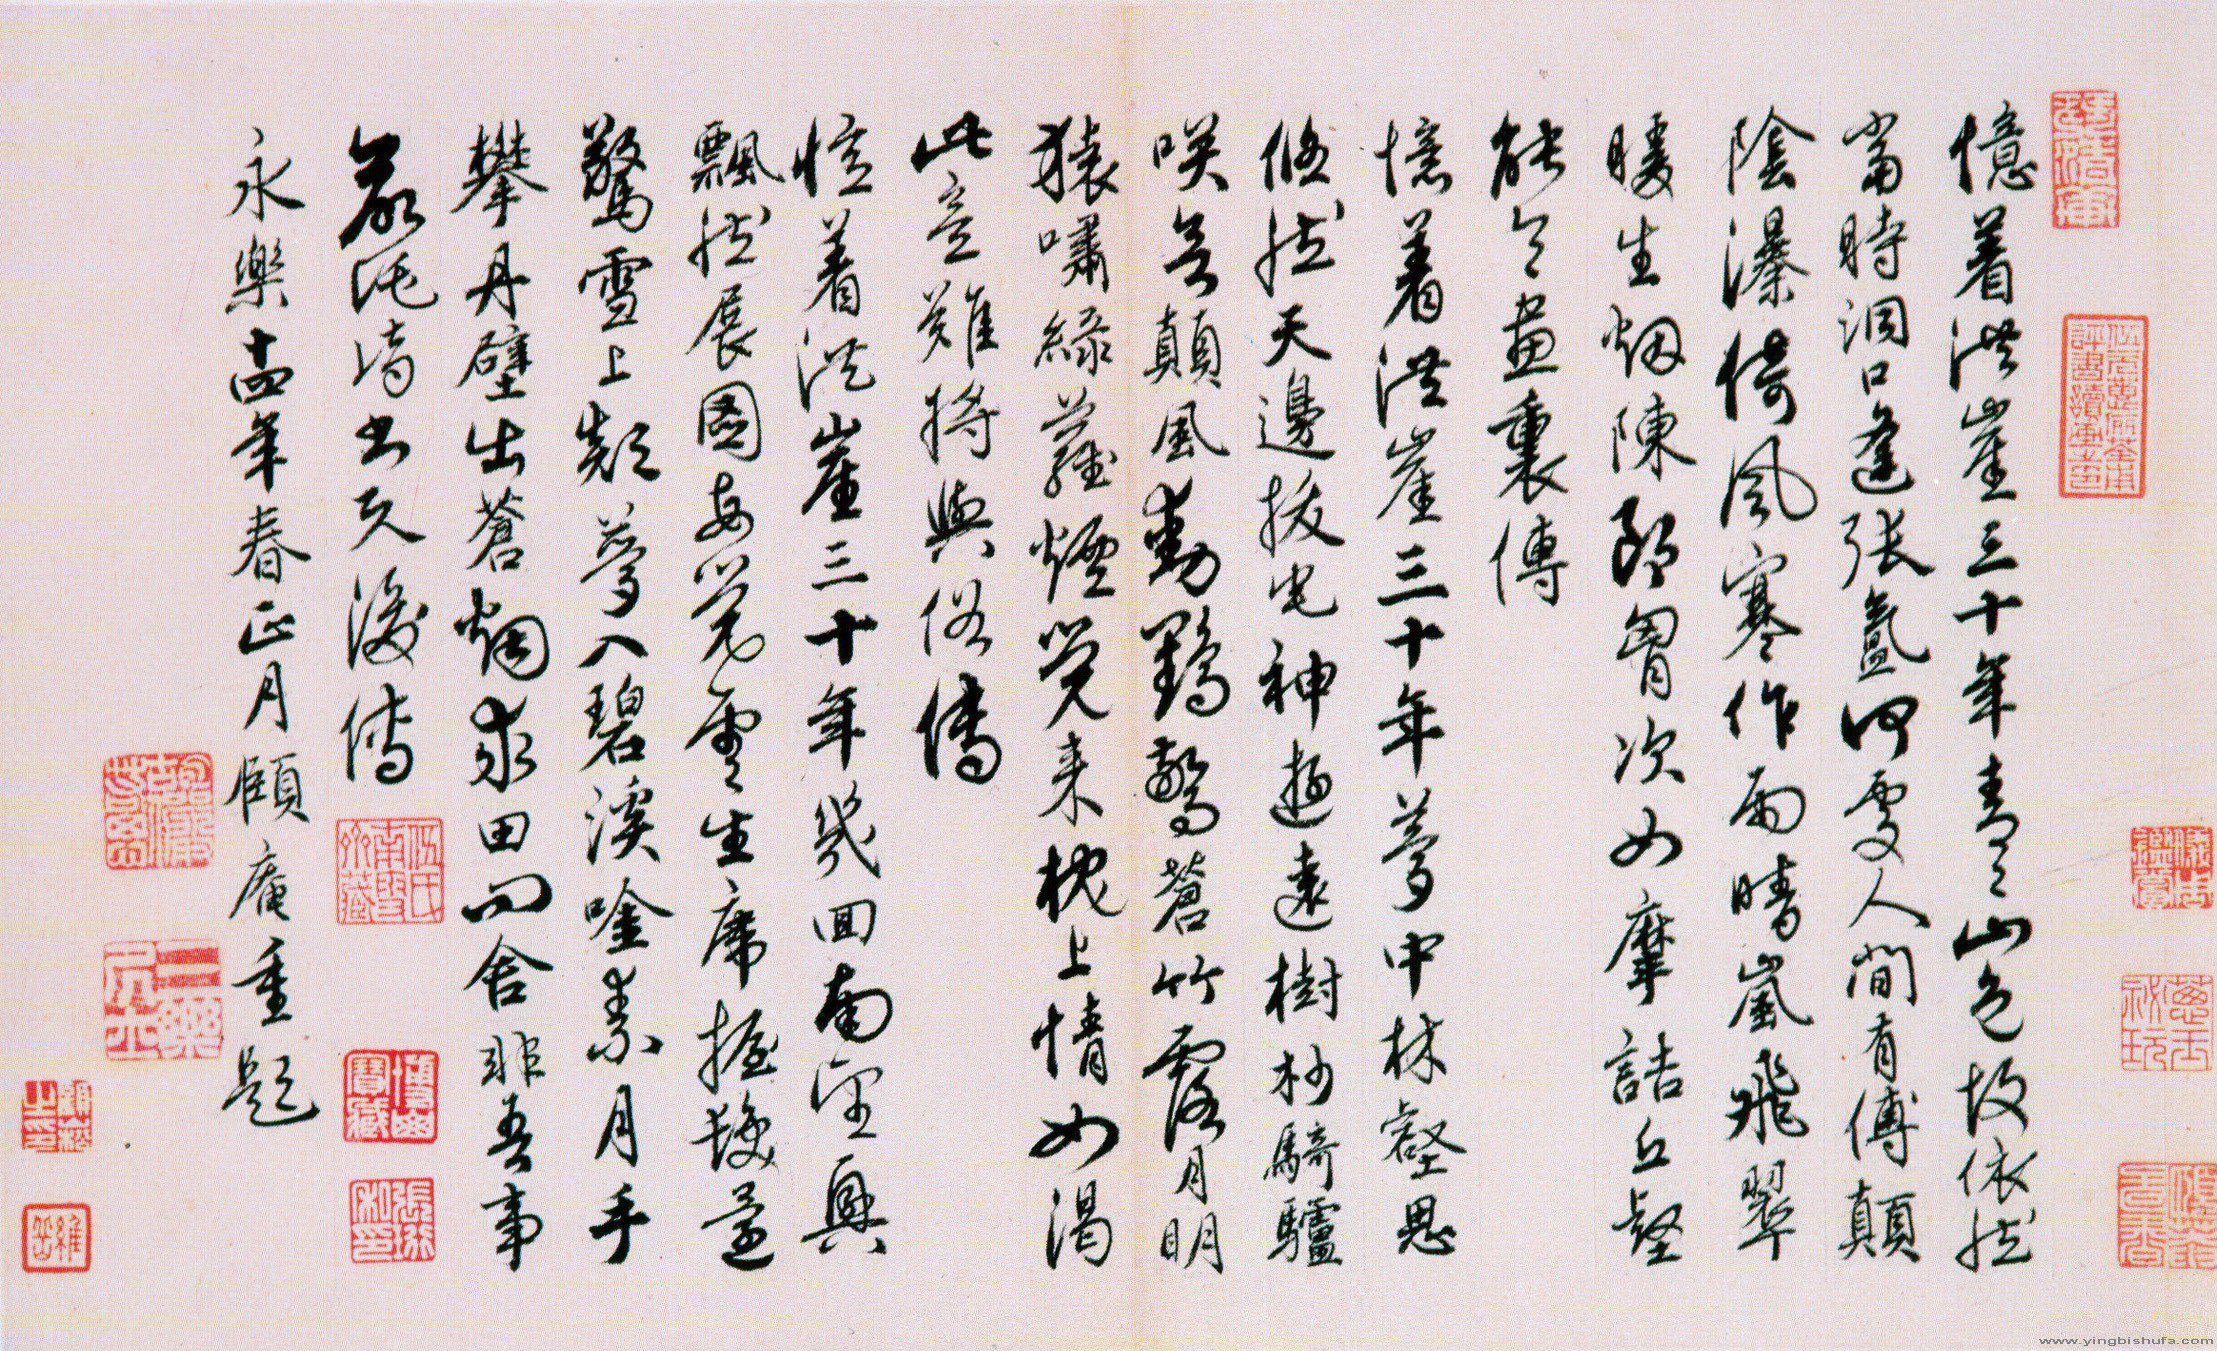 憶着洪崖三十年青〻山色故依然
當時洞口逢張氳何處人間有傅顛
陰瀑倚風寒作雨晴嵐飛翠
暖生烟陳郎胷次如摩詰丘壑
能令畫裏傳
憶着洪崖三十年夢中林壑思
悠然天邊拔宅神遊遠樹杪騎驢
咲顛風動鶴驚蒼竹露月明
猿嘯綠蘿煙覺来枕上情如渴
此意難將與俗傳
憶着洪崖三十年幾回南望興
飄然展圖每覺雲生席握髮還
驚雪上顛夢入碧溪吟素月手
攀丹壁出蒼烟求田問舍非吾事
後傳
永樂十四年春正月頤庵重題
www.yingbishufa.com